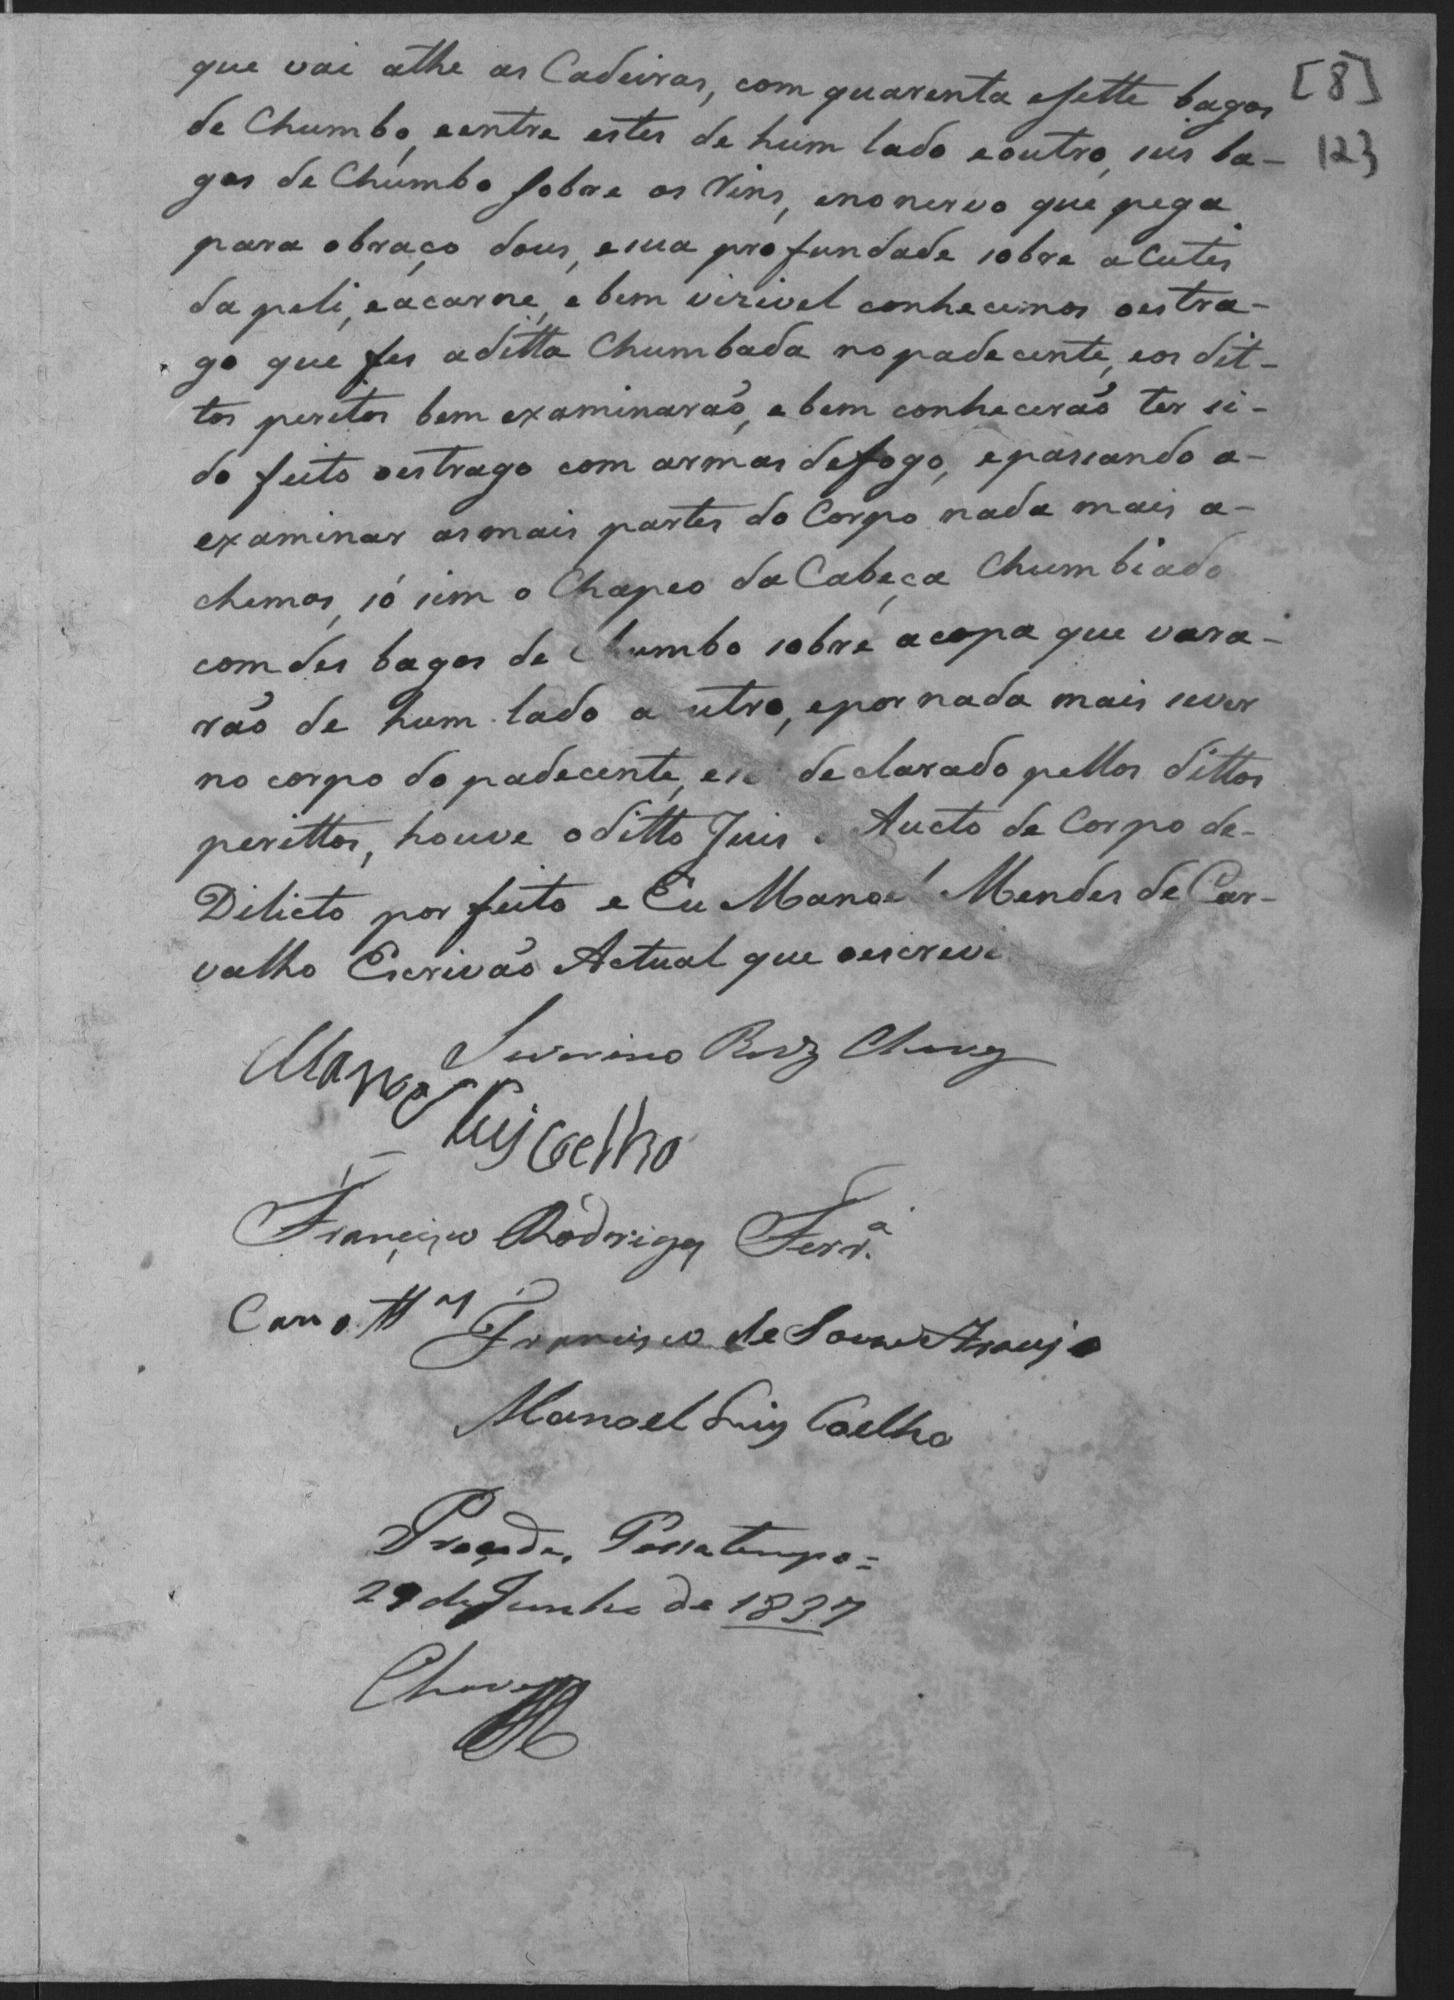 que vai athe as Cadeiras, com quarenta esette bagos
[8]
de Chumbo, eentre estes de hum lado eoutro, seis ba-
123
gos de Chumbo sobre os Rins, enonervo que pega
para obraço dous, esua profundade sobre aCutes
da peli, eacarne, e bem vizivel conhecemos oestra-
go que fes aditta Chumbada nopadecente, eos dit-
tos peritos bem examinarão, e bem conhecerão ter si-
do feito oestrago com armas defogo, epassando a-
examinar asmais partes do Corpo nada mais a-
chemos, só sim o Chapeo da Cabeça Chumbiado
comdes bagos de Chumbo sobre acopa que vara-
rão de hum lado a utro, epornada mais sever
no corpo do padecente, declarado pellos dittos
perittos, houve oditto Juis o Aucto de Corpo de-
Dilicto por feito e Eu Manoel Mendes de Car-
valho Escrivão Actual que oescrevi
Severino Rodz Chaves
Manoel Luis Coelho
Francisco Rodrigues Ferr.a
Como Francisco de Souza Araujo
Manoel Luiz Coelho
Passatempo =
29 de Junho de 1837
Chaves